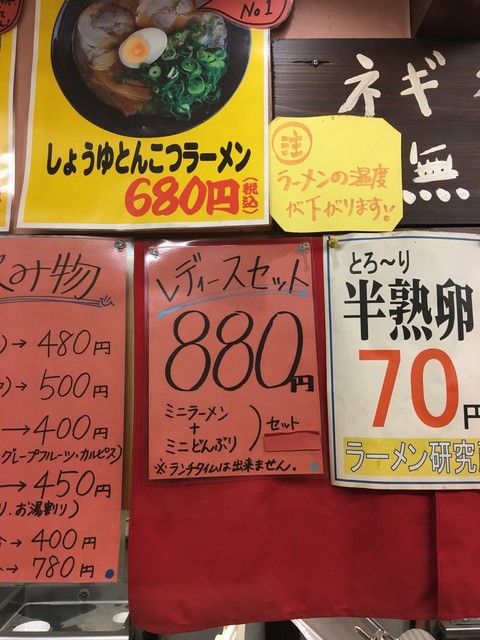 No1
しょうゆとんこつラーメン
680円(税込)
ネギ
無
注
ラーメンの温度
が下がります!!
み物
→480円
→500円
→400円
グレープフルーツ・カルピス)
→450円
り、お湯割り)
→400円
→780円
レディースセット
880円
ミニラーメン
+
ミニどんぶり
)セット
※ランチタイムは出来ません。
とろ～り
半熟卵
70円
ラーメン研究